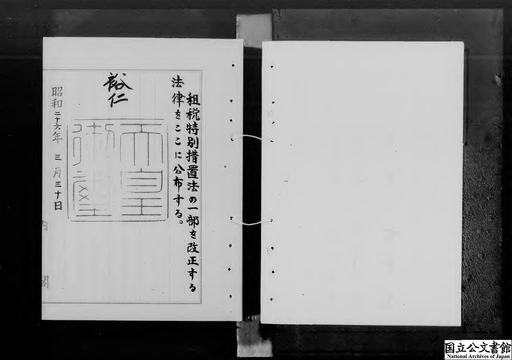 租税特別措置法の一部を改正する
法律をここに公布する。
裕仁
天皇
御璽
昭和二十六年三月三十日
内閣
国立公文書館
National Archives of Japan